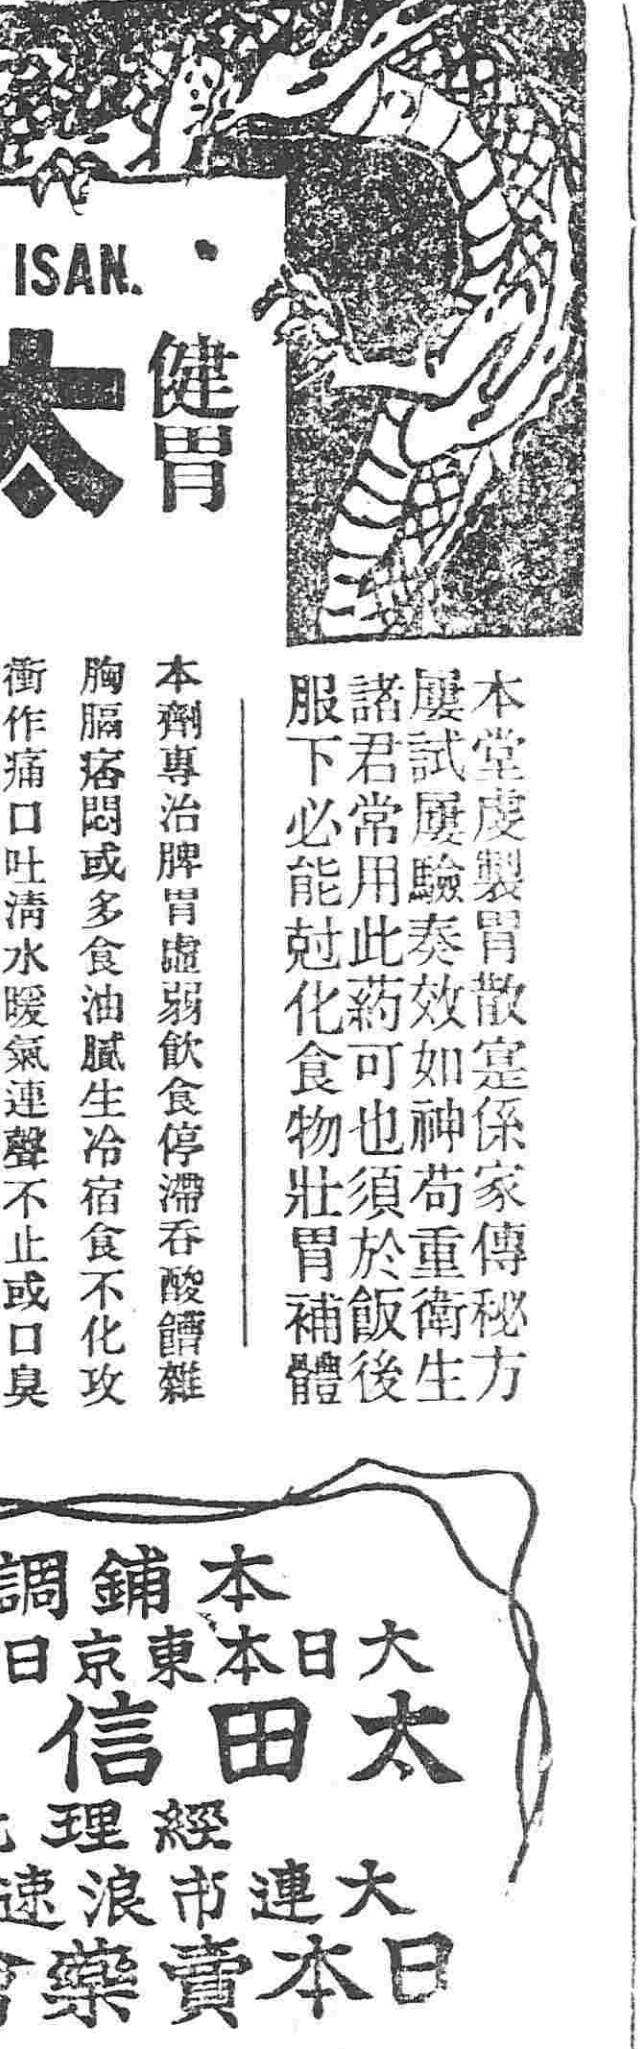 ISAN.
健胃
太
本堂虔製胃散寔係家傳秘方
屢試屢驗奏效如神苟重衛生
諸君常用此葯可也須於飯後
服下必能尅化食物壯胃補體
本劑專治脾胃虛弱飲食停滯吞酸饍雜
胸膈痞悶或多食油膩生冷宿食不化攻
衝作痛口吐清水暖氣連聲不止或口臭
本鋪調
大日本東京日
太田信
經理
大連市浪速
日本賣藥會